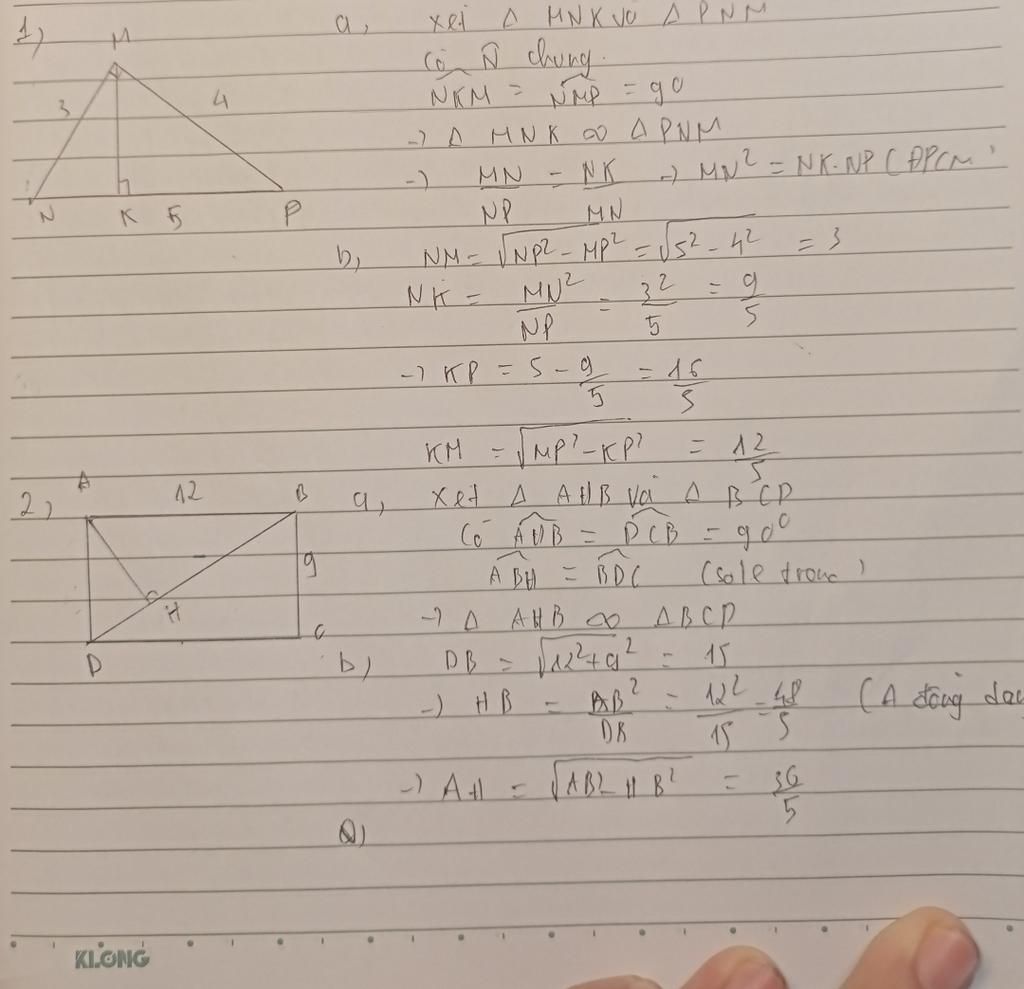 1)
M
3
4
N
K
5
P
a, xét Δ MNK và Δ PNM
Có N̂ chung.
NKM = NMP = 90
→ Δ MNK ∽ Δ PNM
→ MN/NP = NK/MN → MN² = NK.NP (ĐPCM
b, NM = √NP² - MP² = √5² - 4² = 3
NK = MN²/NP = 3²/5 = 9/5
→ KP = 5 - 9/5 = 16/5
KM = √MP² - KP² = 12/5
2)
A
12
B
9
H
D
C
a, xét Δ AHB và Δ BCD
Có AHB = DCB = 90⁰
ABH = BDC (sole tron )
→ Δ AHB ∽ Δ BCD
b) DB = √12² + 9² = 15
→ HB = AB²/DB = 12²/15 = 48/5 (Δ đồng dạ
→ AH = √AB² - HB² = 36/5
KLONG